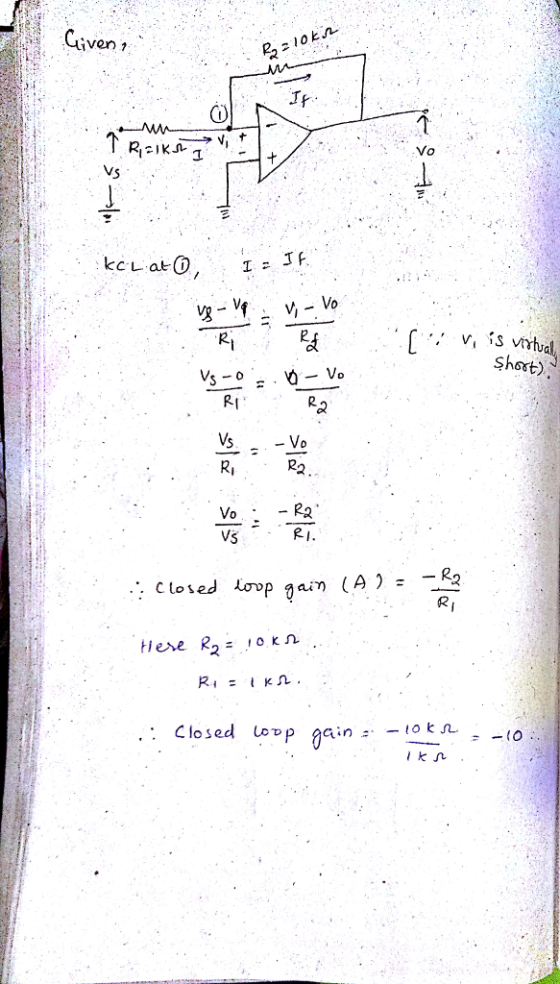 Given,
R₂=10KΩ
If.
①
R₁=1KΩ I V₁ + -
- +
Vs
Vo
KCL at ①, I = If
Vs - V₁ / R₁ = V₁ - Vo / R₂
[∵ V₁ is virtually short).
Vs - 0 / R₁ = 0 - Vo / R₂
Vs / R₁ = - Vo / R₂.
Vo / Vs = - R₂ / R₁.
∴ Closed loop gain (A) = - R₂ / R₁
Here R₂ = 10KΩ.
R₁ = 1KΩ.
∴ Closed loop gain = - 10KΩ / 1KΩ = -10